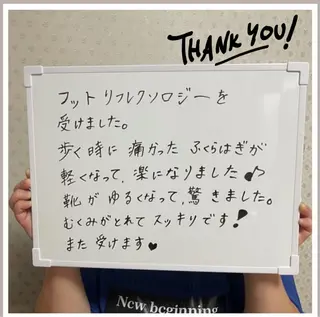 THANK YOU!
フット リフレクソロジーを
受けました。
歩く時に 痛かった ふくらはぎが
軽くなって、楽になりました♪
靴が ゆるくなって、驚きました。
むくみがとれて スッキリです!
また 受けます♥
New beginning